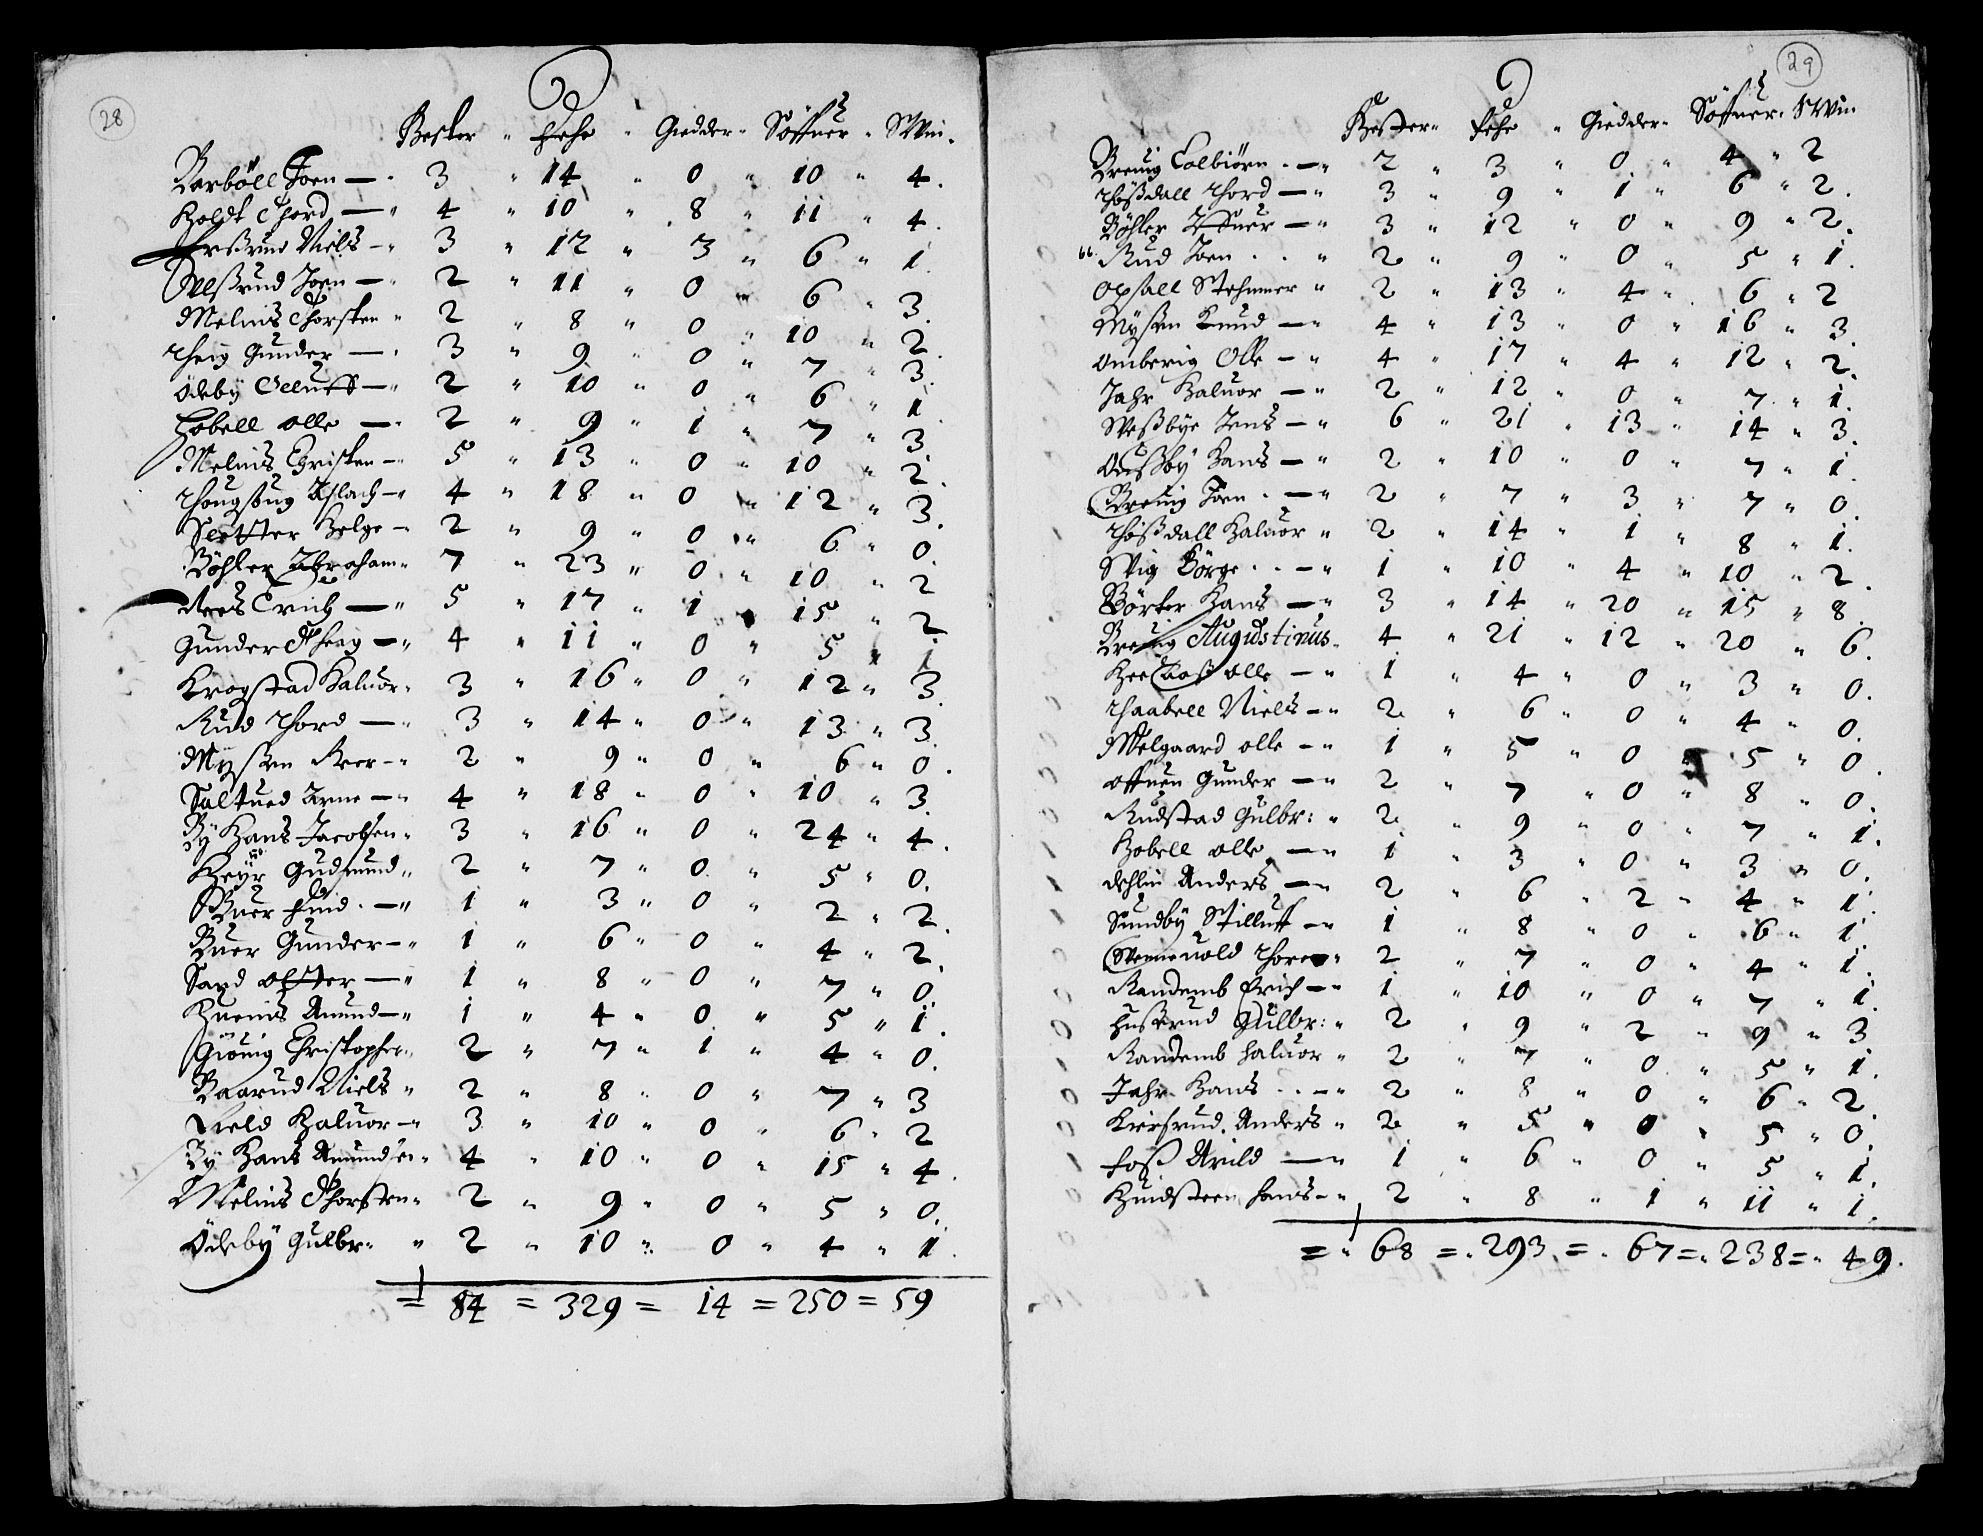 28
Hester " Fehe " Giedder " Söffuer " Swin.
Barböll Joen — " 3 " 14 " 0 " 10 " 4.
Holdt Thord — " 4 " 10 " 8 " 11 " 4.
Niels — " 3 " 12 " 3 " 6 " 1.
Joen — " 2 " 11 " 0 " 6 " 3.
Melnis Thorsten " 2 " 8 " 0 " 10 " 2.
Gunder — " 3 " 9 " 0 " 7 " 3.
Ödeby Elluff — " 2 " 10 " 0 " 6 " 1.
Hobell olle — " 2 " 9 " 1 " 7 " 3.
Melnis Christen — " 5 " 13 " 0 " 10 " 2.
Aslach — " 4 " 18 " 0 " 12 " 3.
Sletter Helge — " 2 " 9 " 0 " 6 " 0.
Böhler Abraham " 7 " 23 " 0 " 10 " 2.
Erich — " 5 " 17 " 1 " 15 " 2
Gunder — " 4 " 11 " 0 " 5 " 1.
Krogstad Haluor " 3 " 16 " 0 " 12 " 3
Rud Thord — " 3 " 14 " 0 " 13 " 3.
Mysen Peer — " 2 " 9 " 0 " 6 " 0.
Saltued Arne — " 4 " 18 " 0 " 10 " 3.
By Hans Jacobsen " 3 " 16 " 0 " 24 " 4.
Gudmund " 2 " 7 " 0 " 5 " 0.
Buer — " 1 " 3 " 0 " 2 " 2.
Buer Gunder — " 1 " 6 " 0 " 4 " 2.
Sand — " 1 " 8 " 0 " 7 " 0.
Amund — " 1 " 4 " 0 " 5 " 1.
Giönig Christopher " 2 " 7 " 1 " 4 " 0.
Baarud Niels " 2 " 8 " 0 " 7 " 3
Field Haluor — " 3 " 10 " 0 " 6 " 2
By Hans Amundsen " 4 " 10 " 0 " 15 " 4.
Melnis Thorsten " 2 " 9 " 0 " 5 " 0.
Ödeby Gulbr: " 2 " 10 " 0 " 4 " 1.
= 84 = 329 = 14 = 250 = 59
29
Hester " Fehe " Giedder " Söffuer " Swin
Brenig Colbiörn — " 2 " 3 " 0 " 4 " 2
Thössdall Thord — " 3 " 9 " 1 " 6 " 2.
Böhler — " 3 " 12 " 0 " 9 " 2.
Rud Joen " 2 " 9 " 0 " 5 " 1.
Opsall Stehnner " 2 " 13 " 4 " 6 " 2
Mysen Knud — " 4 " 13 " 0 " 16 " 3.
Omberig Olle — " 4 " 17 " 4 " 12 " 2.
Jahr Haluor — " 2 " 12 " 0 " 7 " 1.
Jens — " 6 " 21 " 13 " 14 " 3.
Hans — " 2 " 10 " 0 " 7 " 1.
Brenig Joen — " 2 " 7 " 3 " 7 " 0.
Thössdall Haluor " 2 " 14 " 1 " 8 " 1.
Börge — " 1 " 10 " 4 " 10 " 2.
Börter Hans — " 3 " 14 " 20 " 15 " 8.
Brenig Augustinus " 4 " 21 " 12 " 20 " 6.
olle — " 1 " 4 " 0 " 3 " 0.
Thaabell Niels — " 2 " 6 " 0 " 4 " 0.
Melgaard olle — " 1 " 5 " 0 " 5 " 0.
Gunder — " 2 " 7 " 0 " 8 " 0.
Rudstad Gulbr: " 2 " 9 " 0 " 7 " 1.
Hobell olle — " 1 " 3 " 0 " 3 " 0.
Dehlin Anders — " 2 " 6 " 2 " 4 " 1.
Sundby Stilluff — " 1 " 8 " 0 " 6 " 1.
Thore " 2 " 7 " 0 " 4 " 1.
Randemb Erich — " 1 " 10 " 0 " 7 " 1.
Husserud Gulbr: " 2 " 9 " 2 " 9 " 3
Randemb Haluor " 2 " 7 " 0 " 5 " 1.
Jahr Hans — " 2 " 8 " 0 " 6 " 2.
Anders " 2 " 5 " 0 " 5 " 0.
Foss Arild — " 1 " 6 " 0 " 5 " 1.
Huidsteen Hans — " 2 " 8 " 1 " 11 " 1.
= " 68 = " 293 = " 67 = " 238 = " 49.